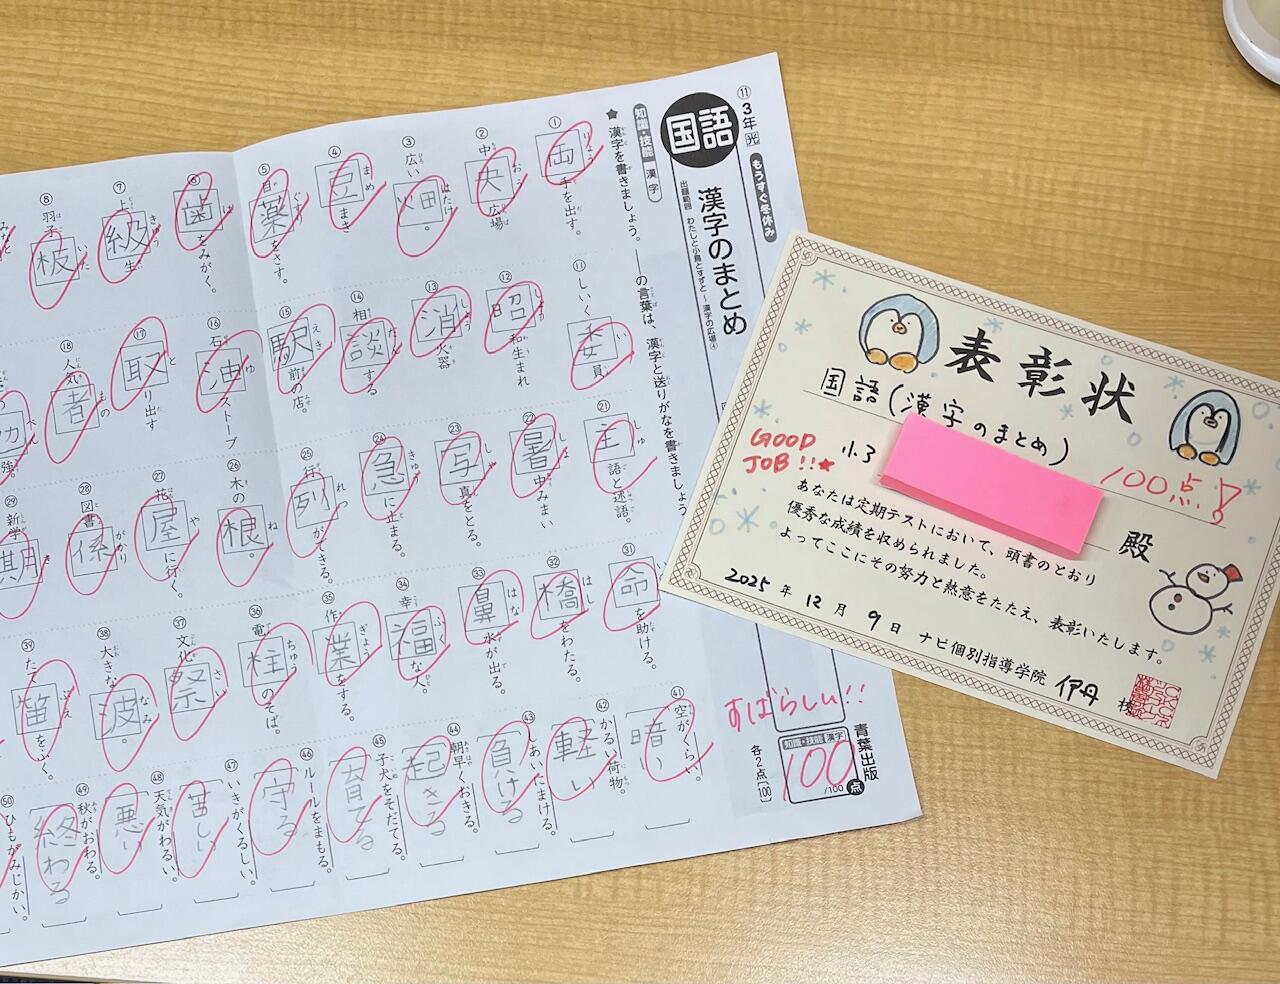 ⑪ 3年 光 もうすぐ冬休み
国語 漢字のまとめ
出題範囲 わたしと小鳥とすずと～漢字の広場④
知識・技能 漢字
★漢字を書きましょう。――の言葉は、漢字と送りがなを書きましょう
① 両手を出す。
② 中央広場
③ 広い畑。
④ 豆まき
⑤ 目薬をさす。
⑥ 歯をみがく。
⑦ 上級生
⑧ 羽子板
⑪ しいく委員
⑫ 昭和生まれ
⑬ 消火器
⑭ 相談する
⑮ 駅前の店。
⑯ 石油ストーブ
⑰ 取り出す
⑱ 人気者
強。
㉑ 主語と述語。
㉒ 暑中みまい
㉓ 写真をとる。
㉔ 急に止まる。
㉕ 行列ができる。
㉖ 木の根。
㉗ 花屋に行く。
㉘ 図書係
㉙ 新学期
㉛ 命を助ける。
㉜ 橋をわたる。
㉝ 鼻水が出る。
㉞ 幸福な人。
㉟ 作業をする。
㊱ 電柱のそば。
㊲ 文化祭
㊳ 大きな波。
㊴ たて笛をふく。
㊶ 空がくらい。 暗い
㊷ かるい荷物。 軽い
㊸ あいにまける。 負ける
㊹ 朝早くおきる。 起きる
㊺ 子犬をそだてる。 育てる
㊻ ルールをまもる。 守る
㊼ いきがくるしい。 苦しい
㊽ 天気がわるい。 悪い
㊾ 秋がおわる。 終わる
㊿ ひもがみじかい。
すばらしい!!
各2点〔100〕
知識・技能 漢字
100
/100 点
青葉出版
表彰状
国語(漢字のまとめ)
GOOD JOB!!★
小3
100点!
殿
あなたは定期テストにおいて、頭書のとおり
優秀な成績を収められました。
よってここにその努力と熱意をたたえ、表彰いたします。
2025年12月9日 ナビ個別指導学院 伊丹校